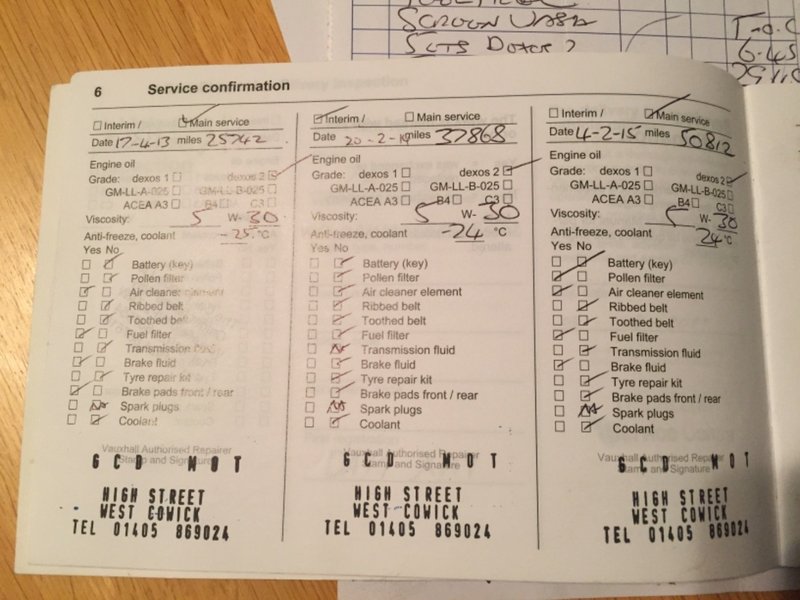 SCREEN WASH
6.45
6 Service confirmation
Interim / Main service
Date 17-4-13 miles 25742
Engine oil
Grade: dexos 1 dexos 2
GM-LL-A-025 GM-LL-B-025
ACEA A3 B4 C3
Viscosity: 5 W- 30
Anti-freeze, coolant -25 °C
Yes No
Battery (key)
Pollen filter
Air cleaner element
Ribbed belt
Toothed belt
Fuel filter
Transmission fluid
Brake fluid
Tyre repair kit
Brake pads front / rear
NA Spark plugs
Coolant
Vauxhall Authorised Repairer
Stamp and Signature
GCD MOT
HIGH STREET
WEST COWICK
TEL 01405 869024
Interim / Main service
Date 20-2-14 miles 37868
Engine oil
Grade: dexos 1 dexos 2
GM-LL-A-025 GM-LL-B-025
ACEA A3 B4 C3
Viscosity: 5 W- 30
Anti-freeze, coolant -24 °C
Yes No
Battery (key)
Pollen filter
Air cleaner element
Ribbed belt
Toothed belt
Fuel filter
NA Transmission fluid
Brake fluid
Tyre repair kit
Brake pads front / rear
NA Spark plugs
Coolant
Vauxhall Authorised Repairer
Stamp and Signature
GCD MOT
HIGH STREET
WEST COWICK
TEL 01405 869024
Interim / Main service
Date 4-2-15 miles 50812
Engine oil
Grade: dexos 1 dexos 2
GM-LL-A-025 GM-LL-B-025
ACEA A3 B4 C3
Viscosity: 5 W- 30
Anti-freeze, coolant 24 °C
Yes No
Battery (key)
Pollen filter
Air cleaner element
Ribbed belt
Toothed belt
Fuel filter
Transmission fluid
Brake fluid
Tyre repair kit
Brake pads front / rear
NA Spark plugs
Coolant
Vauxhall Authorised Repairer
Stamp and Signature
GCD MOT
HIGH STREET
WEST COWICK
TEL 01405 869024